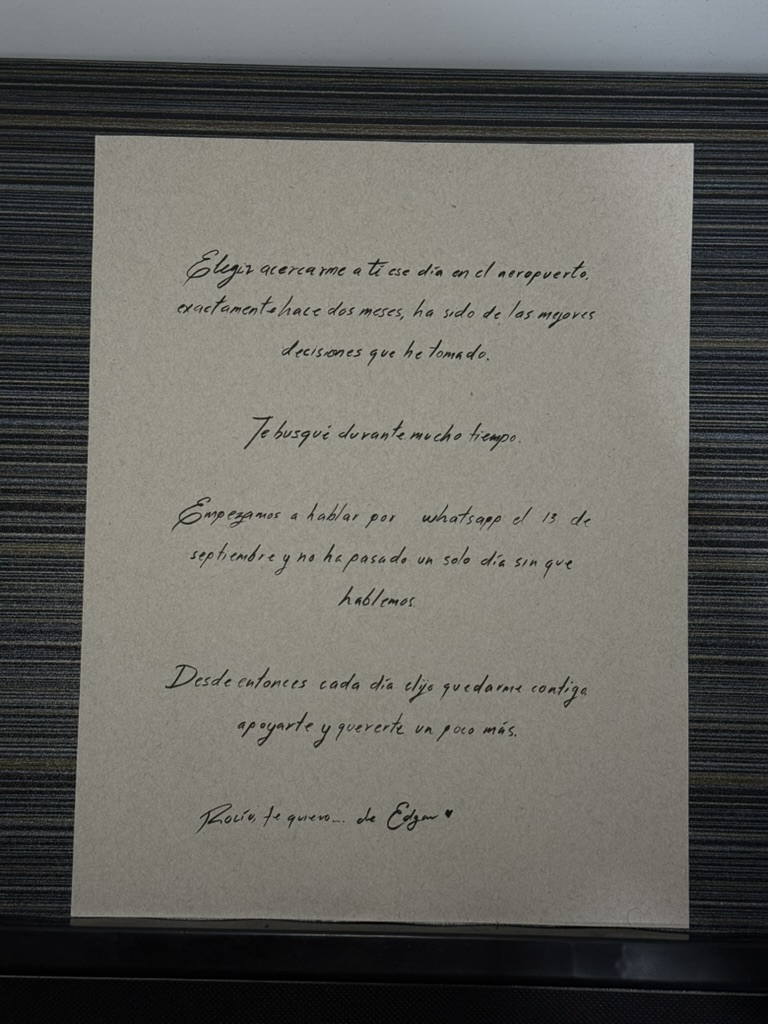 Elegir acercarme a ti ese día en el aeropuerto,
exactamente hace dos meses, ha sido de las mejores
decisiones que he tomado.
Te busqué durante mucho tiempo.
Empezamos a hablar por whatsapp el 13 de
septiembre y no ha pasado un solo día sin que
hablemos.
Desde entonces cada día elijo quedarme contigo
apoyarte y quererte un poco más.
Rocío, te quiero... de Edgar ♥